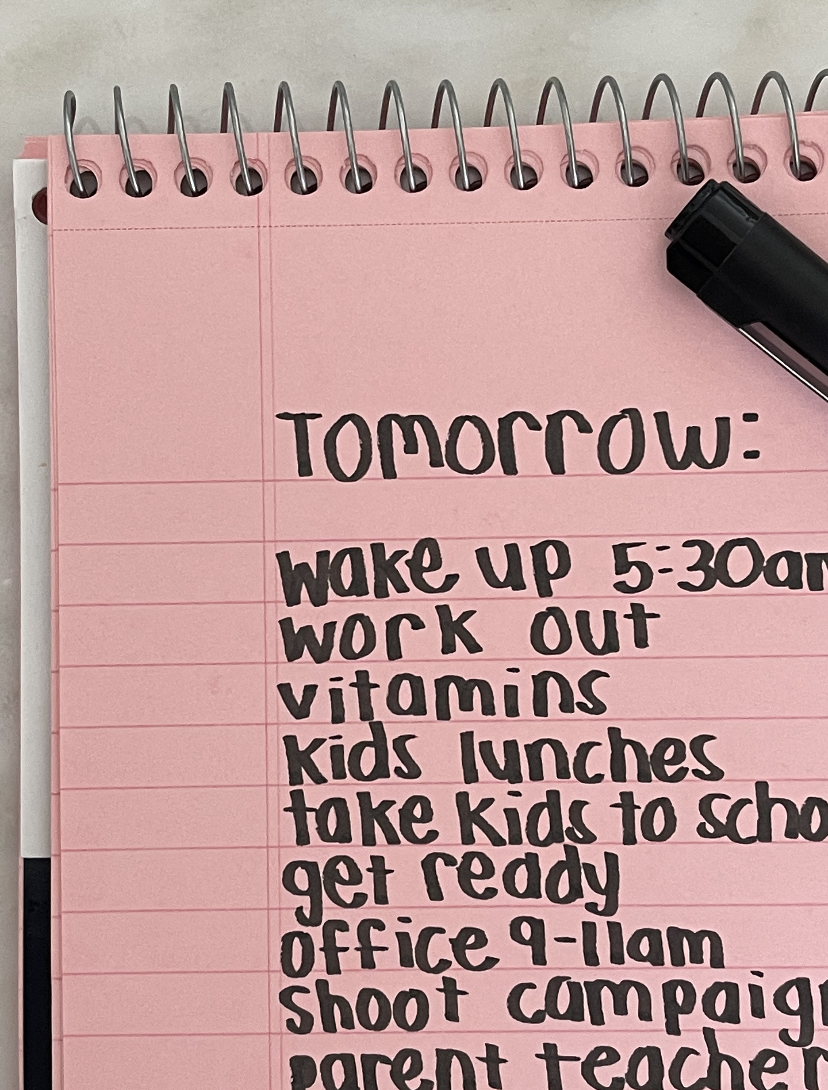 Tomorrow:
wake up 5:30am
work out
vitamins
kids lunches
take kids to scho
get ready
office 9-11am
shoot campaign
parent teacher